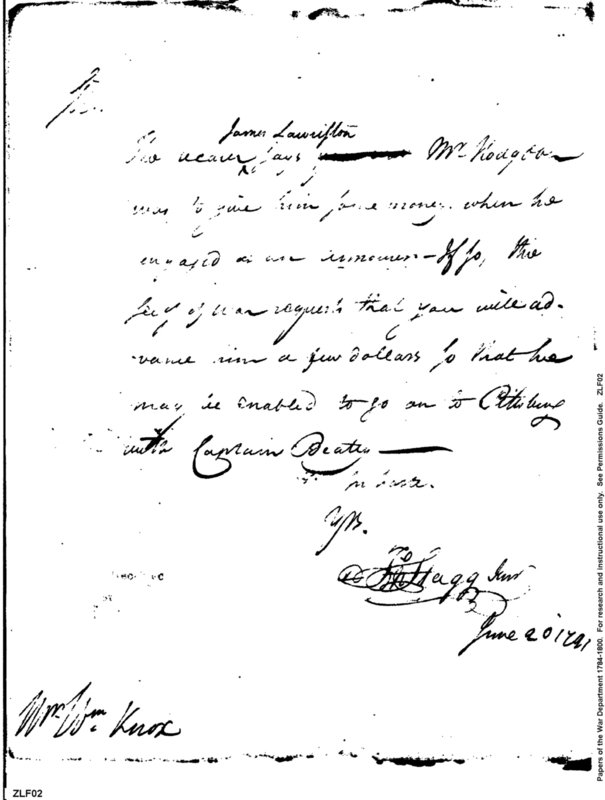 Sir
James Lawrifton
The bearer says Mr. Hodgdon
was to give him some money when he
engaged as an armourer – If so, the
Secy of War requests that you will ad-
vance him a few dollars so that he
may be enabled to go on to Pittsburg
with Captain Beatty
In haste.
Yrs.
Stagg Junr
June 20 1791
Mr. Wm. Knox
ZLF02
Papers of the War Department 1784-1800. For research and instructional use only. See Permissions Guide. ZLF02